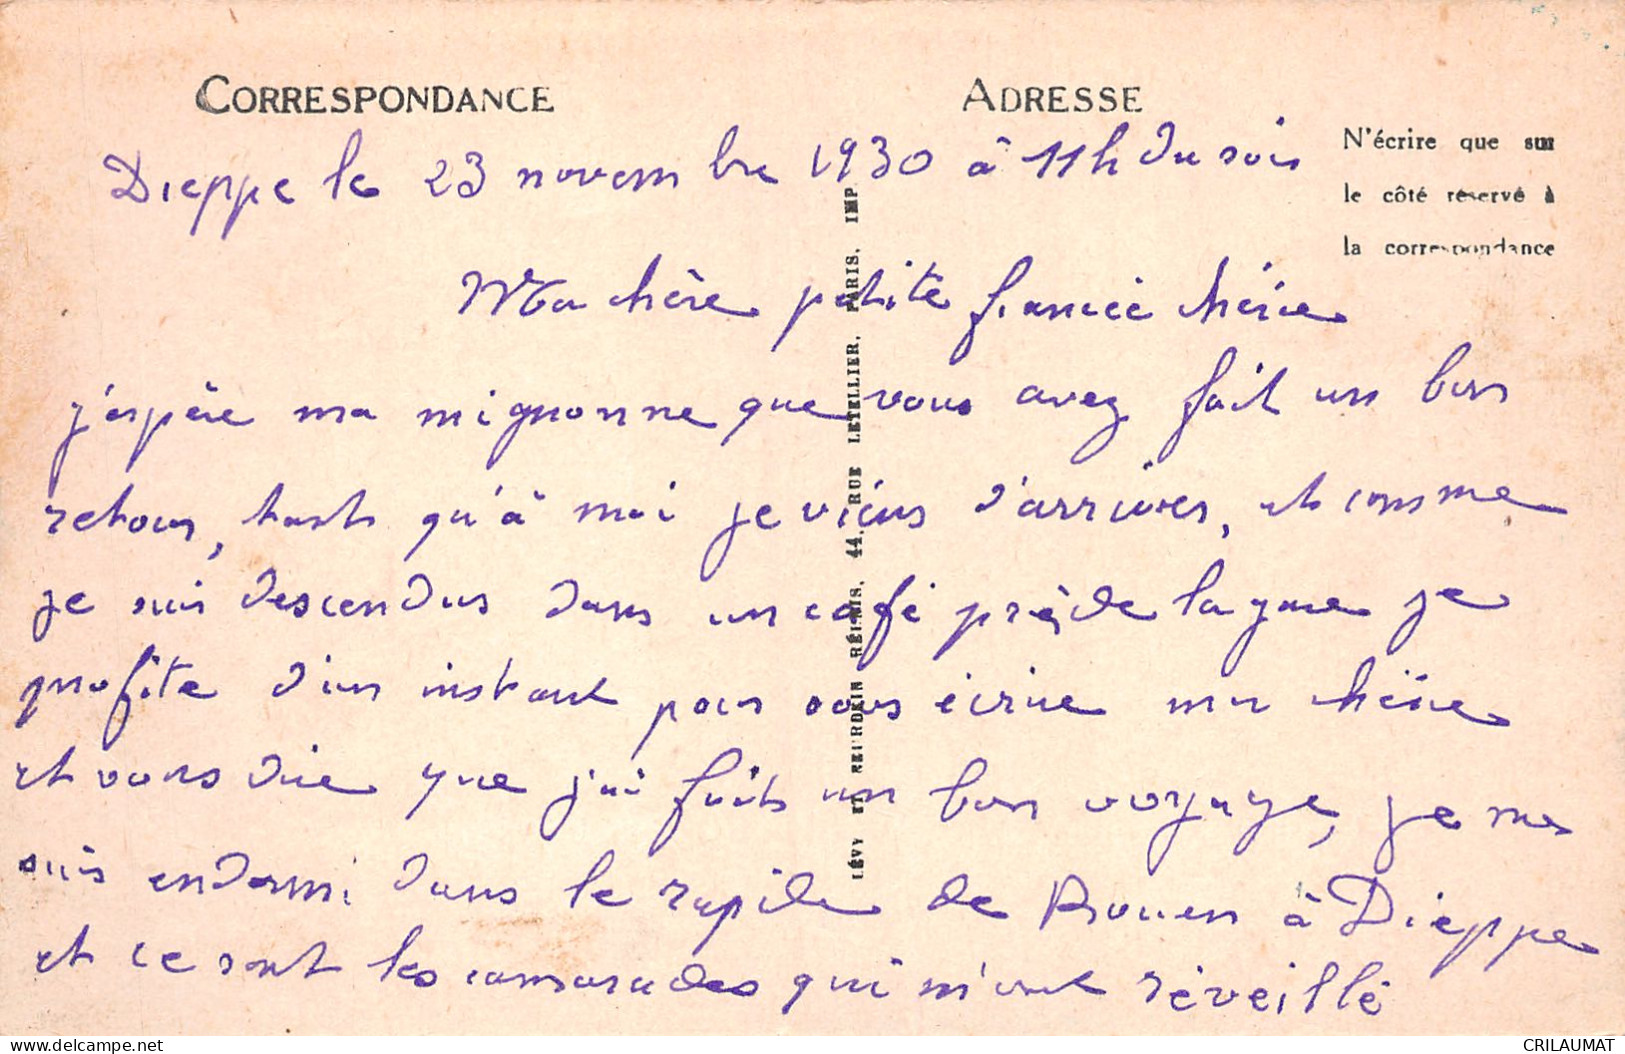 CORRESPONDANCE
ADRESSE
N'écrire que sur
le côté réservé à
la correspondance
Dieppe le 23 novembre 1930 à 11h du soir
Ma chère petite fiancée chérie
j'espère ma mignonne que vous avez fait un bon
retour, tant qu'à moi je viens d'arriver, et comme
je suis descendus dans un café près de la gare je
profite d'un instant pour vous écrire ma chérie
et vous dire que j'ai faits un bon voyage, je me
suis endormi dans le rapide de Rouen à Dieppe
et ce sont les camarades qui m'ont réveillé
LÉVY ET NEURDEIN RÉUNIS, 44, RUE LETELLIER, PARIS. IMP.
www.delcampe.net
CRILAUMAT